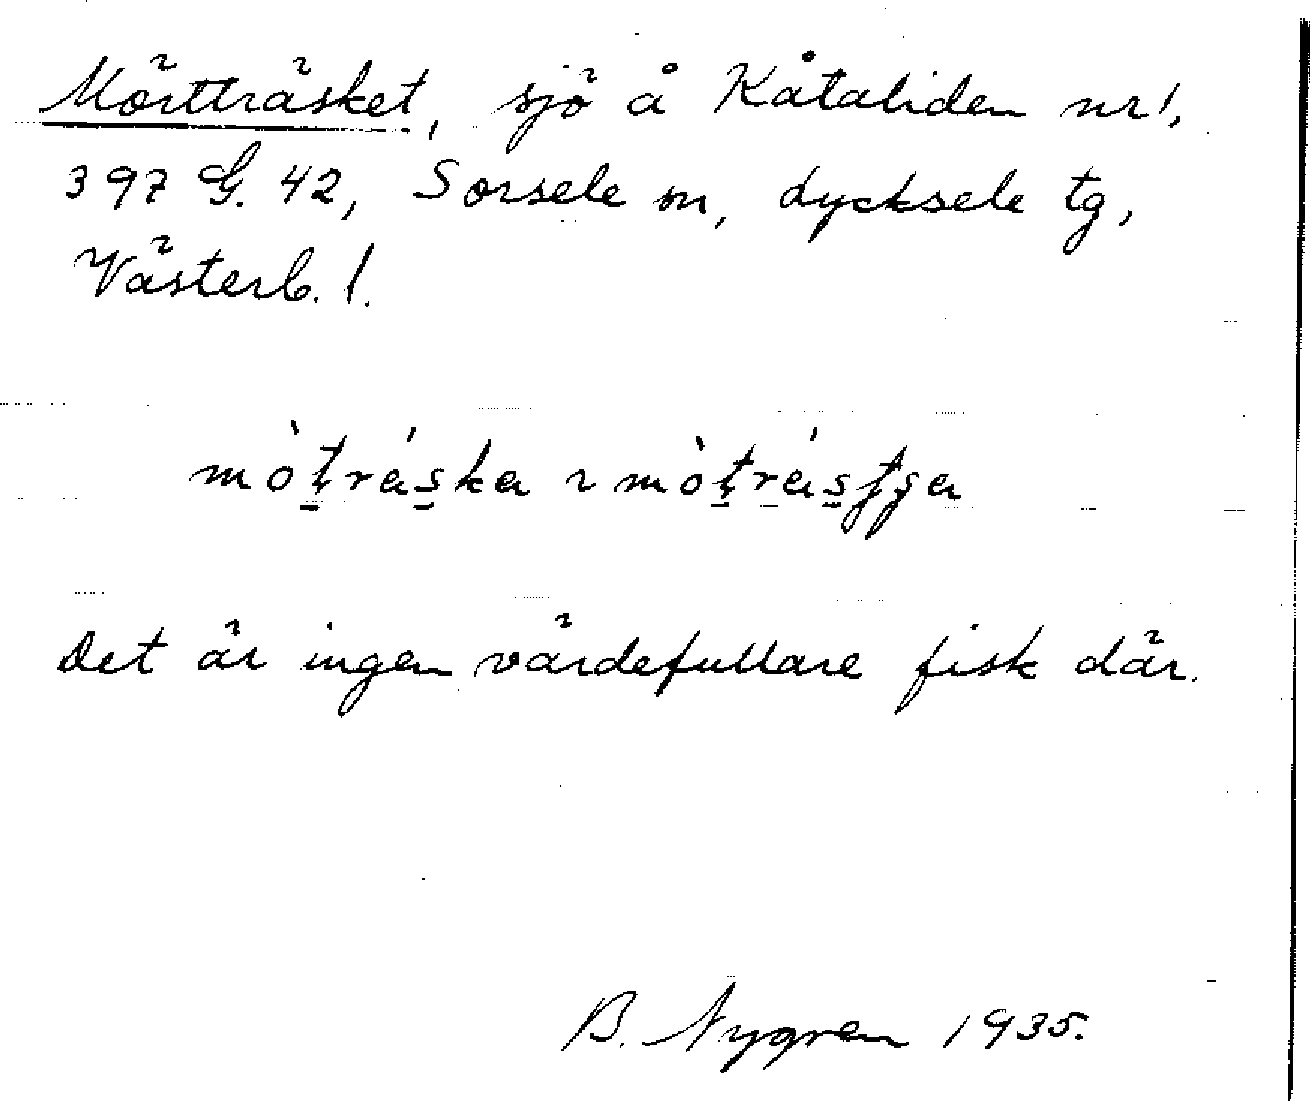 Mörtträsket, sjö å Kåtaliden nr 1,
397 G. 42, Sorsele sn, Lycksele tg,
Västerb. l.
mòţráṣka ~ mòţráṣţṣa
Det är ingen värdefullare fisk där.
B. Nygren 1935.